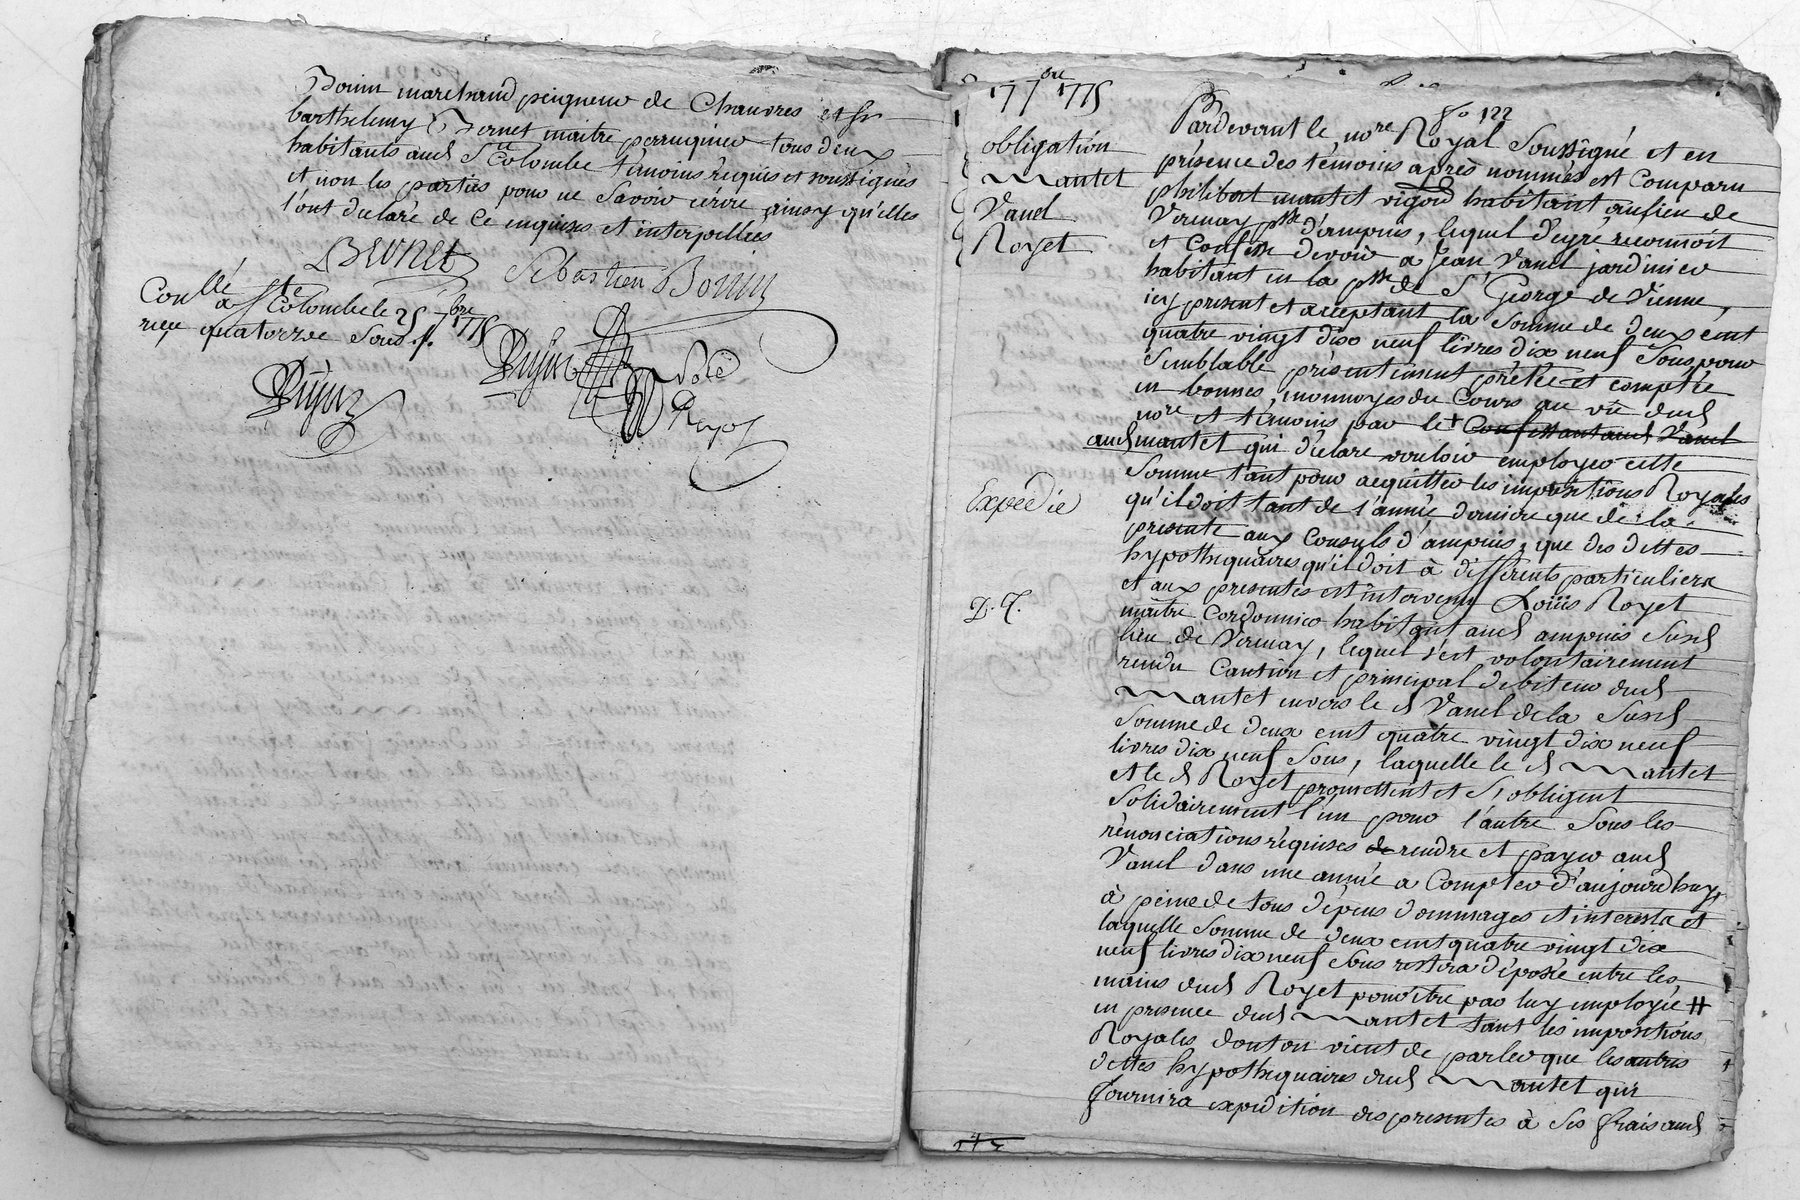 Boiron marchand peigneur de Chanvres et Sr
barthelemy Bernet maitre perruquier tous deux
habitants aud Ste Colombe témoins requis et soussignés
et non les parties pour ne Savoir écrire ainsy qu'elles
l'ont déclaré de Ce enquises et interpellées
Bernet Sebastien Boiron
Conllé a Ste Colombe le 25 7bre 1775
reçu quatorze Sous
17 7bre 1775
fo 122
obligation
Mantet
Vanel
Royet
Pardevant le nore Royal Soussigné et en
présence des témoins après nommés est Comparu
philibert mantet vigon habitant au lieu de
Verenay psse d'ampuis, lequel de gré reconnoit
et Confesse devoir à Jean Vanel jardinier
habitant en la psse de St George de Vienne,
icy present et acceptant la Somme de deux cent
quatre vingt dix neuf livres dix neuf Sous, pour
Semblable présentement prêtée et comptée
en bonnes monnoyes du Cours au vû dud
nore et témoins par le + Confessant aud Vanel
aud mantet qui déclare vouloir employer cette
Somme tant pour acquitter les impositions Royales
qu'il doit tant de l'année derniere que de la
presente aux Consuls d'ampuis, que des dettes
hypothequaires qu'il doit à differents particuliers
et aux presentes est intervenu Loüis Royet
maitre Cordonnier habitant aud ampuis Susd
lieu de Verenay, lequel s'est volontairement
rendu Caution et principal debiteur dud
Mantet envers le d Vanel de la Susd
Somme de deux cent quatre vingt dix neuf
livres dix neuf Sous, laquelle le d Mantet
et le d Royet promettent et S'obligent
Solidairement l'un pour l'autre Sous les
rénonciations réquises de rendre et payer aud
Vanel dans une année a Compter d'aujourdhuy,
à peine de tous dépens dommages et interests et
laquelle Somme de deux cent quatre vingt dix
neuf livres dix neuf Sous restera déposée entre les
mains dud Royet pour être par luy employée #
en presence dud Mantet tant les impositions
Royales dont on vient de parler que les autres
dettes hypothequaires dud Mantet qui
fournira expedition des presentes à Ses frais aud
Expédié
D. 7.